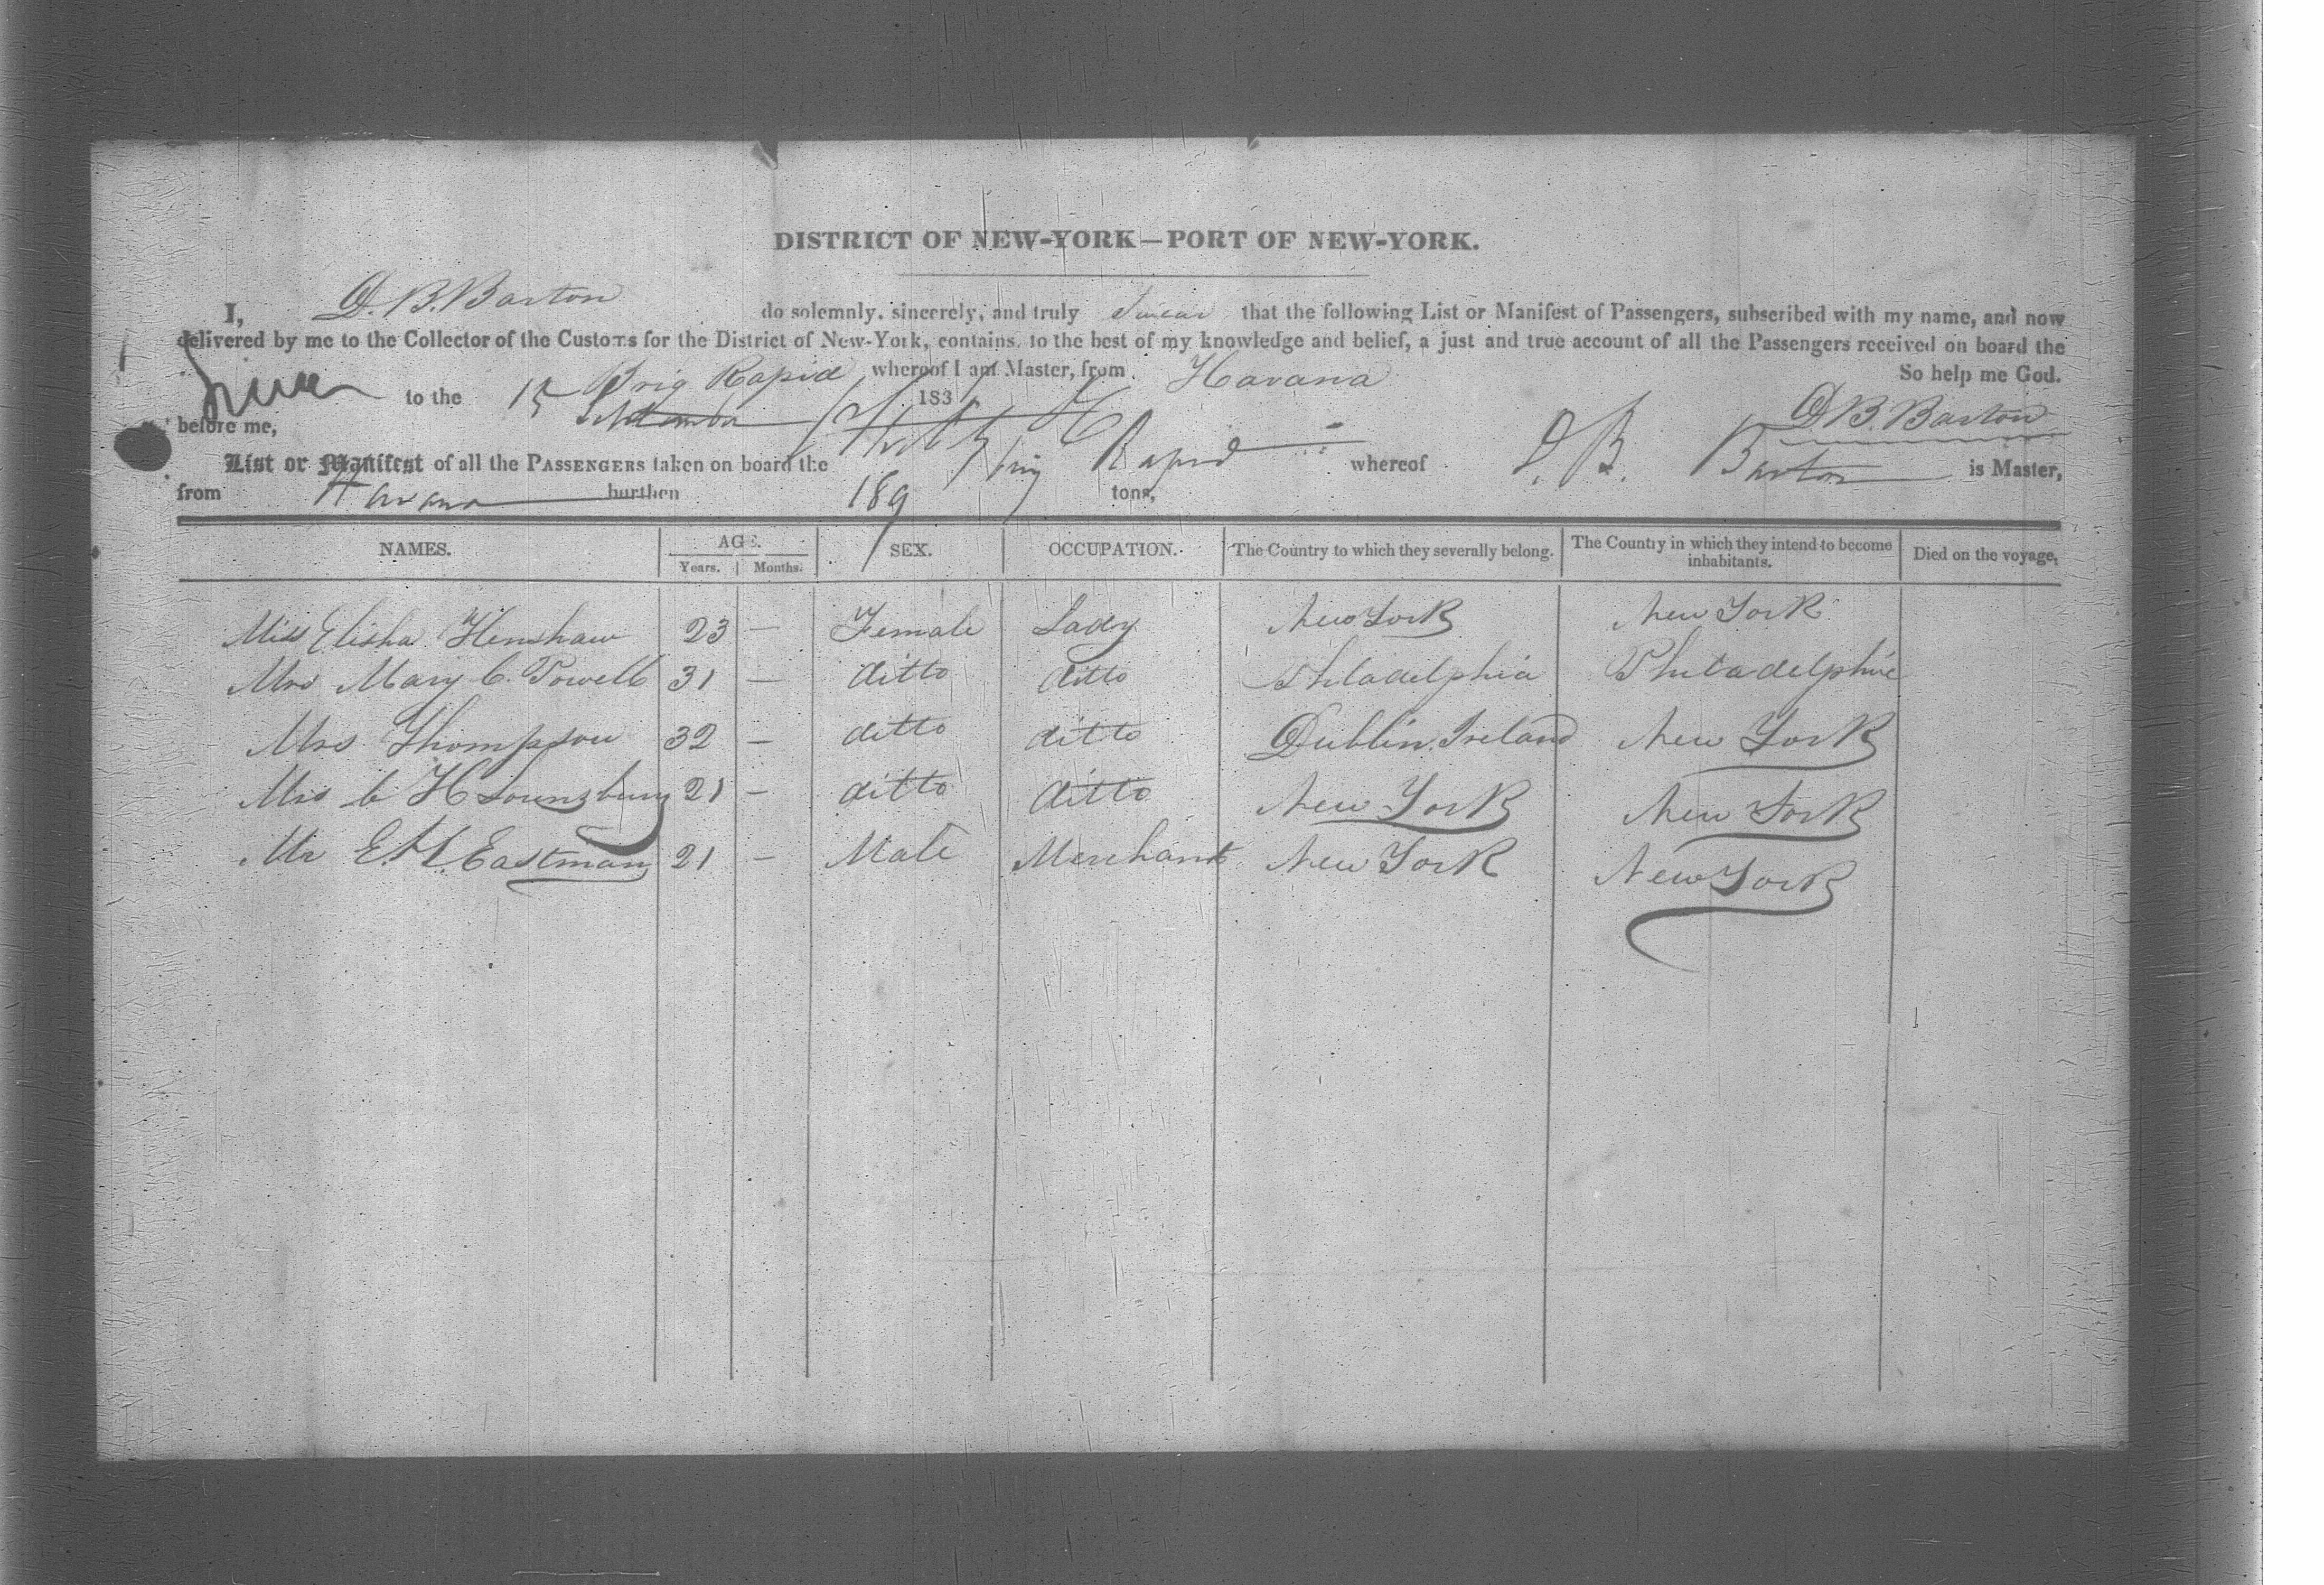 DISTRICT OF NEW-YORK—PORT OF NEW-YORK.
I, D. B. Barton do solemnly, sincerely, and truly Swear that the following List or Manifest of Passengers, subscribed with my name, and now
delivered by me to the Collector of the Customs for the District of New-York, contains, to the best of my knowledge and belief, a just and true account of all the Passengers received on board the
Brig Rapid whereof I am Master, from Havana So help me God.
to the 15 183 D B. Barton
before me,
List or Manifest of all the PASSENGERS taken on board the Brig Rapid whereof D. B. Barton is Master,
from Havana burthen 189 tons,
NAMES. AGE. SEX. OCCUPATION. The Country to which they severally belong. The Country in which they intend to become inhabitants. Died on the voyage.
Years. Months.
Miss Elisha Henshaw 23 — Female Lady New York New York
Mrs Mary C. Powell 31 — ditto ditto Philadelphia Philadelphia
Mrs Thompson 32 — ditto ditto Dublin, Ireland New York
Mrs C H Lounsbury 21 — ditto ditto New York New York
Mr E. H. Eastman 21 — Male Merchant New York New York